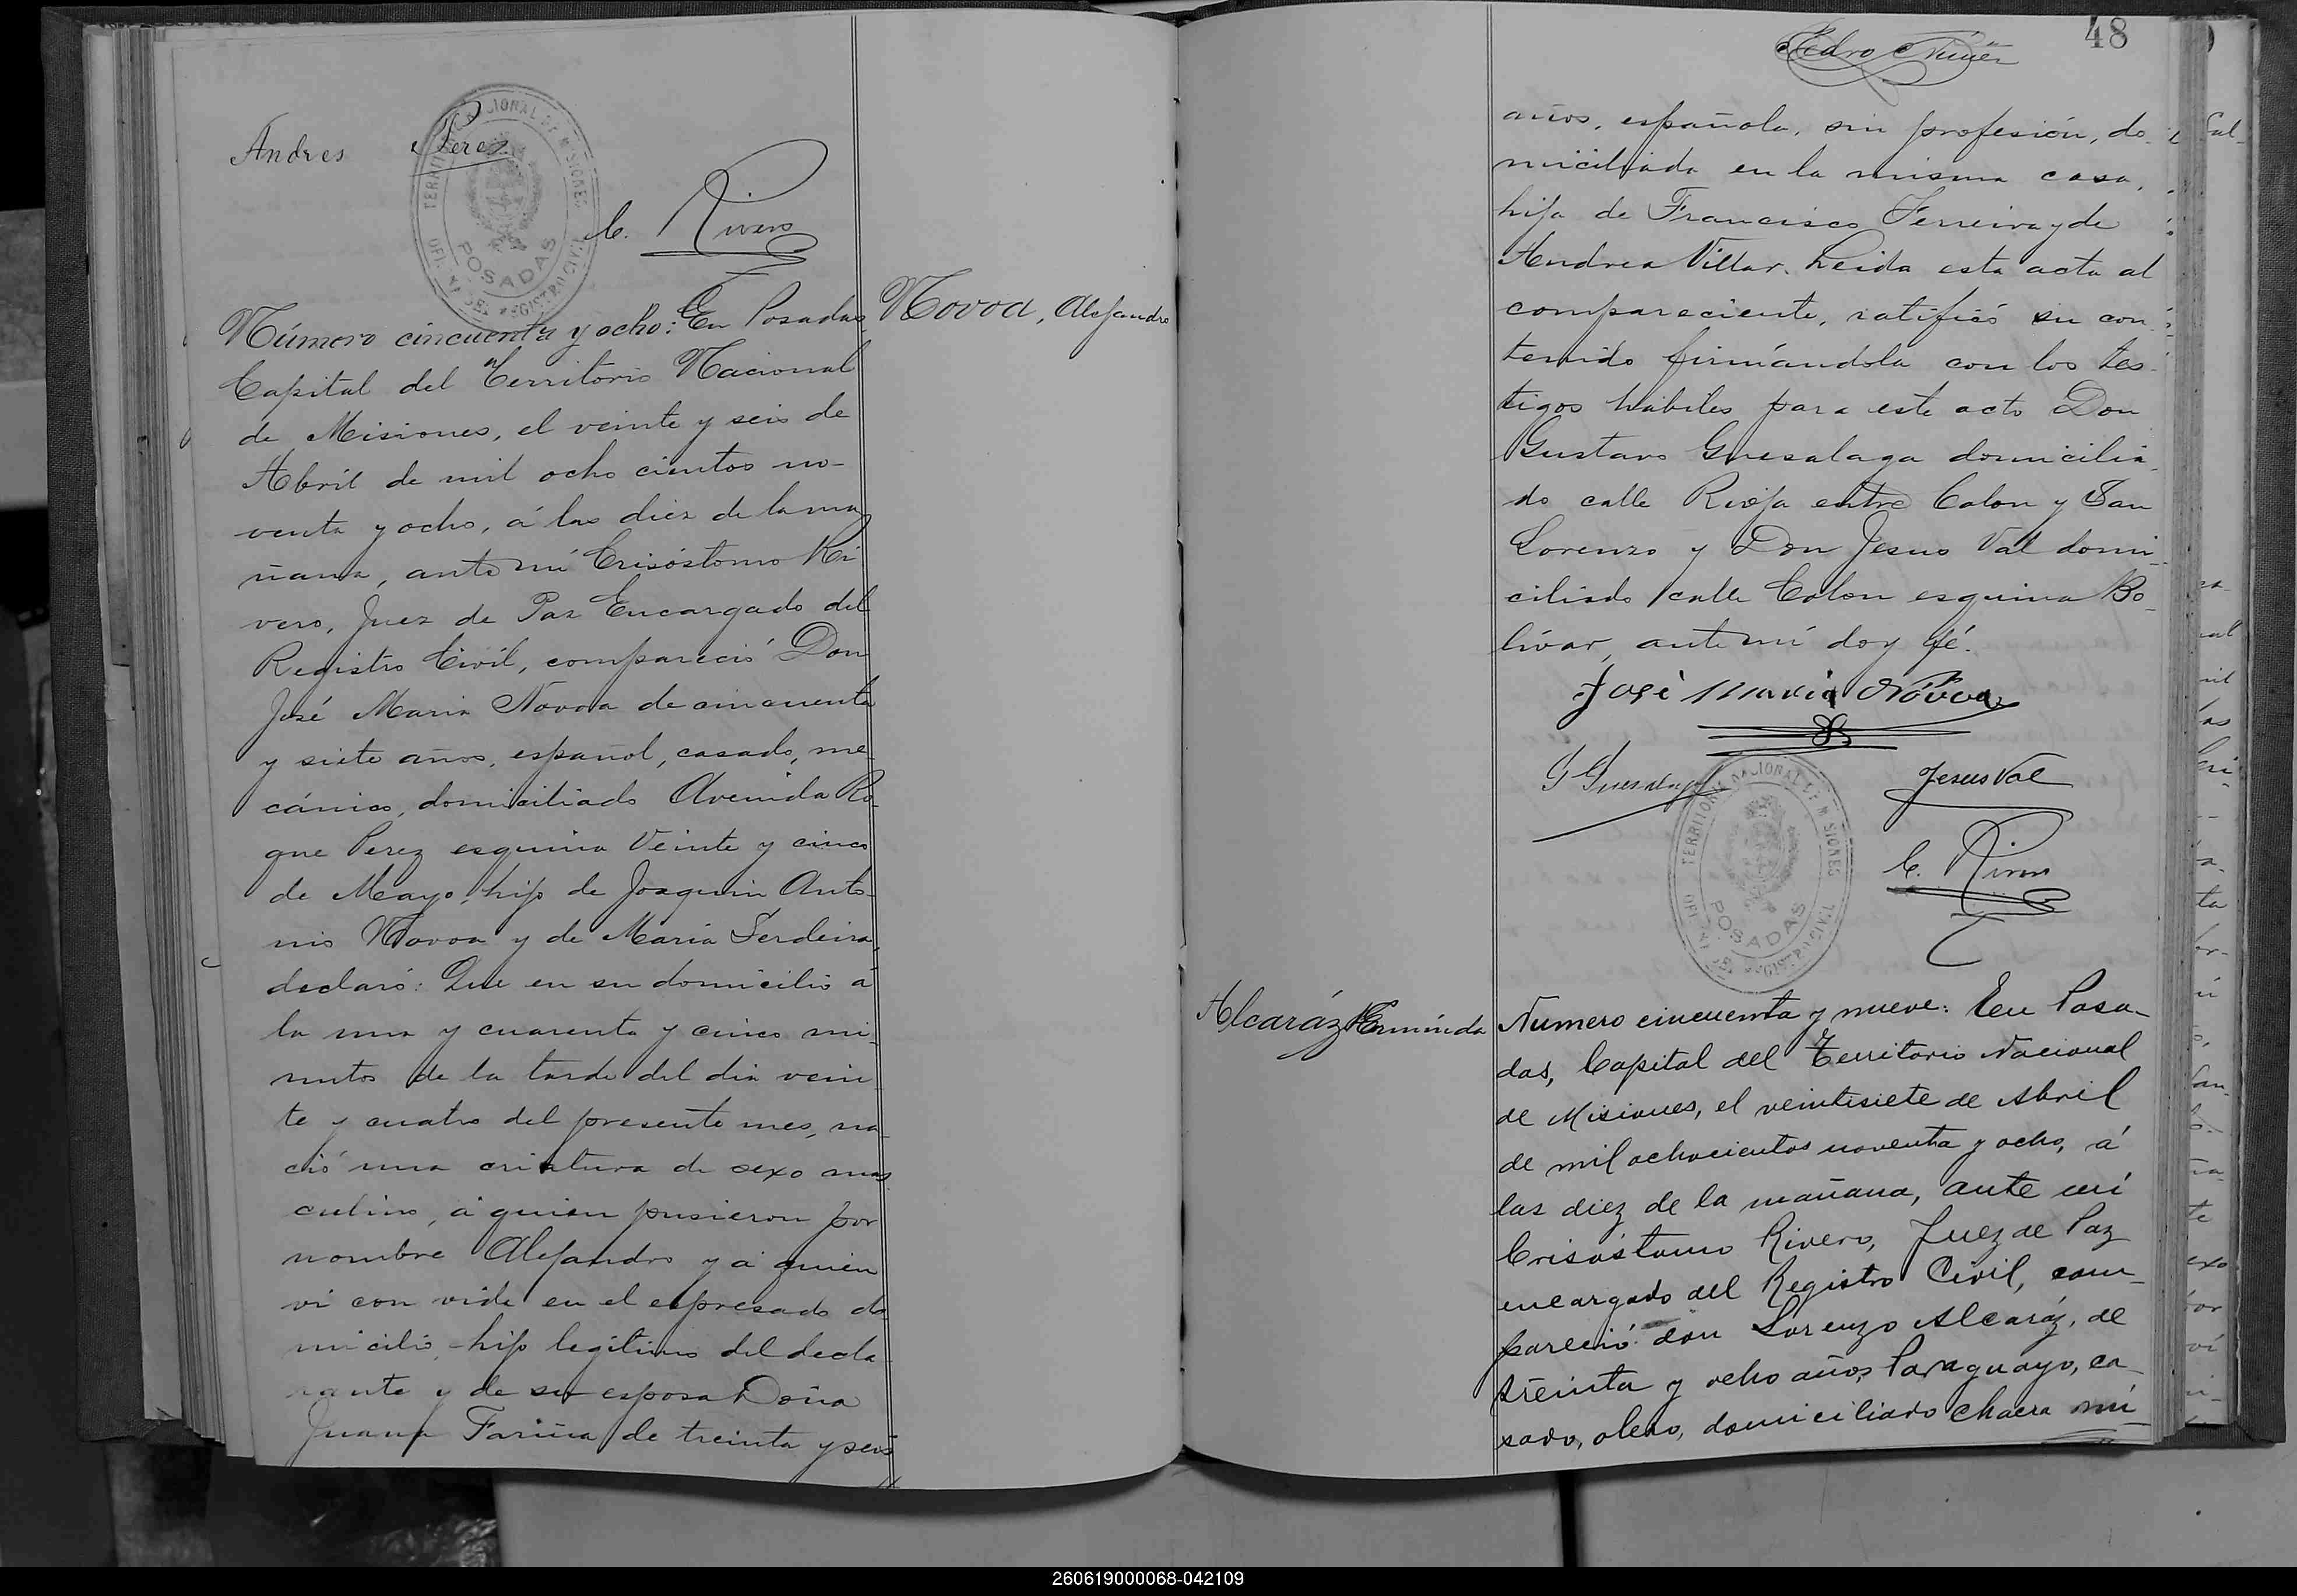 Andres Perez
TERRITORIO NACIONAL DE MISIONES
POSADAS
REGISTRO CIVIL
C. Rivero
Número cincuenta y ocho: En Posadas
Novoa, Alejandro
Capital del Territorio Nacional
de Misiones, el veinte y seis de
Abril de mil ocho cientos no-
venta y ocho, á las diez de la ma
ñana, ante mí Crisóstomo Ri
vero, Juez de Paz Encargado del
Registro Civil, compareció Don
José Maria Novoa de cincuenta
y siete años, español, casado, me
cánico, domiciliado Avenida Ro-
que Perez esquina Veinte y cinco
de Mayo, hijo de Joaquin Anto-
nio Novoa y de Maria Ferdeira,
declaró: Que en su domicilio á
la una y cuarenta y cinco mi-
nutos de la tarde del dia vein
te y cuatro del presente mes, na-
ció una criatura de sexo mas
culino, á quien pusieron por
nombre Alejandro y á quien
vi con vida en el espresado do
micilio, hijo legítimo del decla
rante y de su esposa Doña
Juana Fariña de treinta y seis
48
Pedro Nuñez
años, española, sin profesión, do-
miciliada en la misma casa,
hija de Francisco Ferreira y de
Andrea Villar. Leida esta acta al
compareciente, ratificó su con-
tenido firmándola con los tes-
tigos hábiles para este acto Don
Gustavo Guesalaga domicilia-
do calle Rioja entre Colon y San
Lorenzo y Don Jesus Val domi-
ciliado calle Colon esquina Bo-
lívar, ante mí doy fé.
José Maria Nóvoa
G Guesalaga
Jesus Val
TERRITORIO NACIONAL DE MISIONES
POSADAS
REGISTRO CIVIL
C. Rivero
Alcaráz Erminda
Numero cincuenta y nueve: En Posa-
das, Capital del Territorio Nacional
de Misiones, el veintisiete de Abril
de mil ochocientos noventa y ocho, á
las diez de la mañana, ante mí
Crisóstomo Rivero, Juez de Paz
encargado del Registro Civil, com-
pareció don Lorenzo Alcaráz, de
treinta y ocho años, Paraguayo, ca-
sado, olero, domiciliado chacra nú-
260619000068-042109